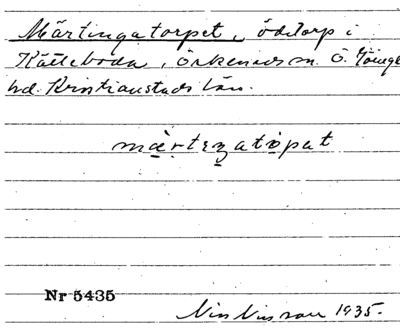 Märtingatorpet, ödetorp i
Kätteboda, Örkeneds sn. Ö. Göinge
hd. Kristianstads län.
Nr 5435
Nils Nilsson 1935.